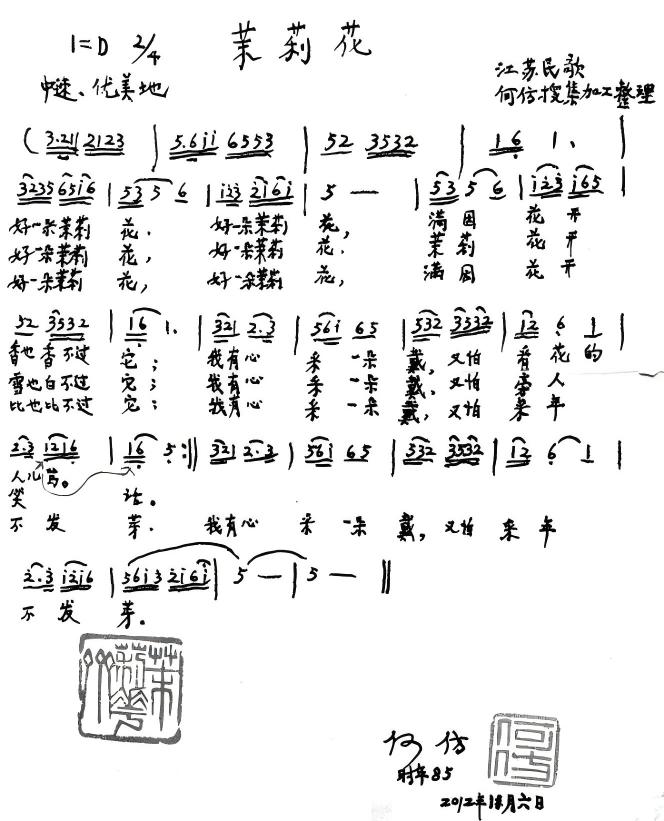 1=D 2/4 茉莉花
中速、优美地
江苏民歌
何仿搜集加工整理
( 3·211 2123 | 5·6i i 6553 | 52 3532 | 16 1、 |
3235 656i6 | 53 5 6 | i2i3 2i6i | 5 — | 53 5 6 | i2i3 i65 |
好一朵茉莉 花, 好一朵茉莉 花, 满园 花开
好一朵茉莉 花, 好一朵茉莉 花, 茉莉 花开
好一朵茉莉 花, 好一朵茉莉 花, 满园 花开
52 3532 | 16 1. | 321 2·3 | 56i 65 | 532 3532 | 12 6 1 |
香也香不过 它; 我有心 采一朵 戴,又怕 看花的
雪也白不过 它; 我有心 采一朵 戴,又怕 旁人
比也比不过 它; 我有心 采一朵 戴,又怕 来年
2·3 1216 | 16 5 :‖ 321 2·3 | 56i 65 | 332 3532 | 12 6 1 |
人儿骂。
笑 话。
不发 芽. 我有心 采一朵 戴,又怕 来年
2·3 1216 | 56i3 2i6i | 5 — | 5 — ‖
不发 芽。
何仿
时年85